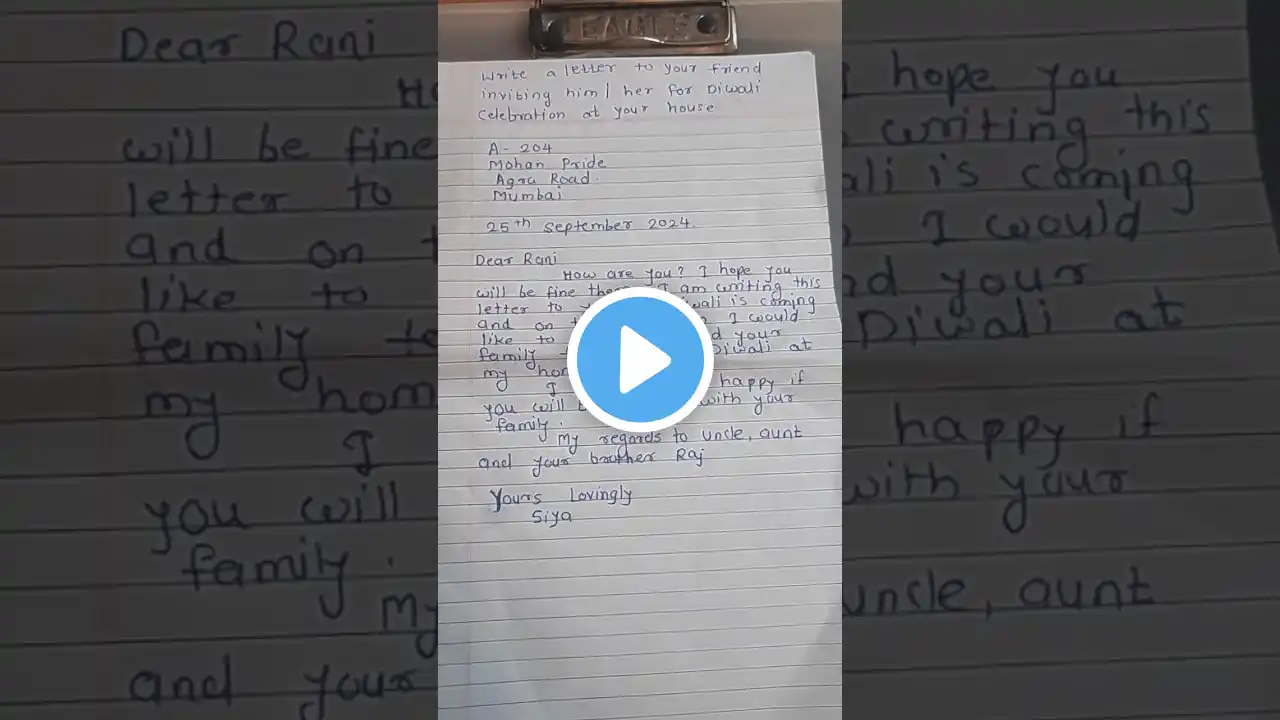 EAGLE
Write a letter to your friend
inviting him / her for Diwali
Celebration at your house
A - 204
Mohan Pride
Agra Road.
Mumbai
25th September 2024.
Dear Rani
How are you? I hope you
will be fine I am writing this
letter to is coming
and on I would
like to your
family Diwali at
my
I happy if
you will with your
family.
My regards to uncle, aunt
and your brother Raj
Yours Lovingly
Siya